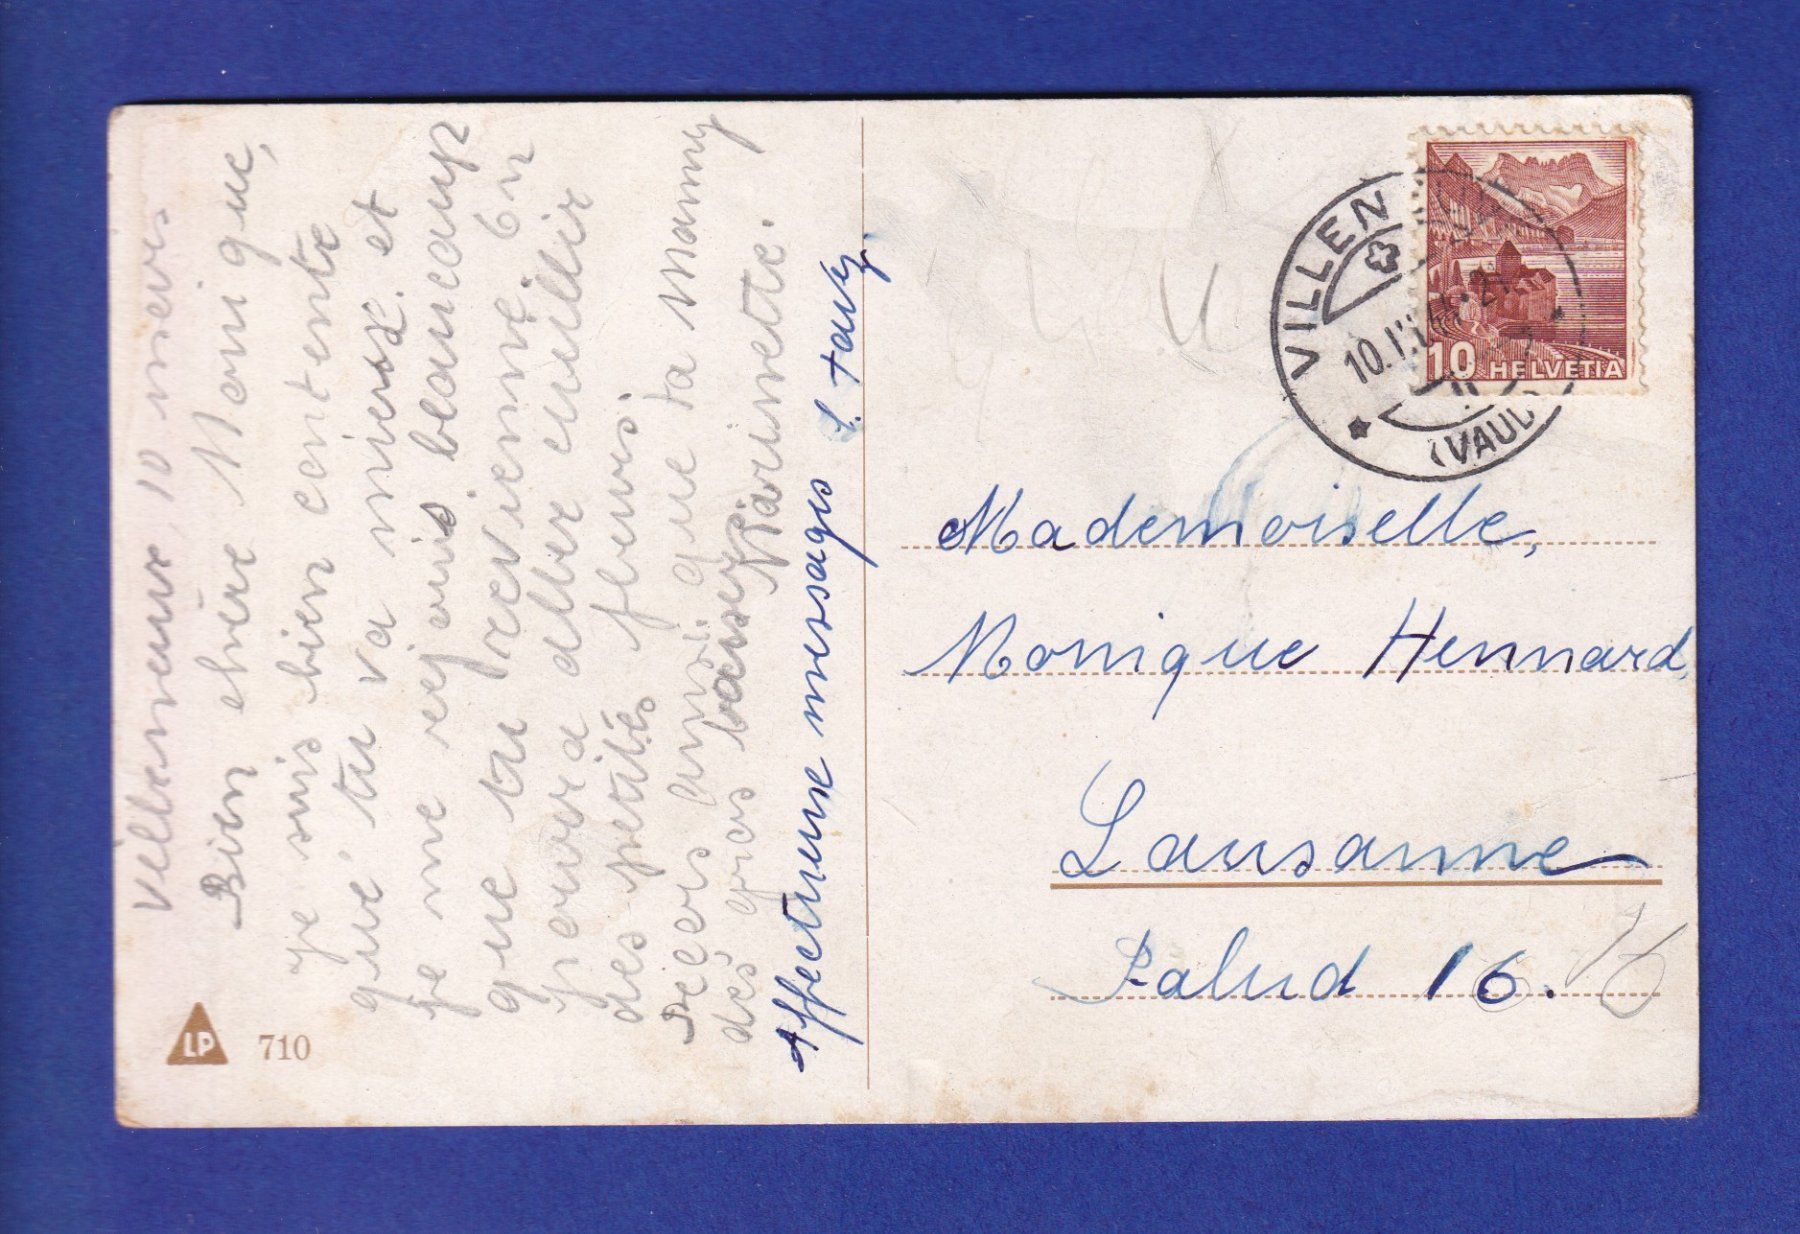 Villeneuve, 10 mars
Bien chère Monique,
je suis bien contente
que tu va mieux et
je me rejouis beaucoup
que tu revienne 6n
pouvra aller cuillir
des petites fleurs.
Reçers aussi que ta mamy
des gros baisers
Narinette.
Affectueux messages S. Tauy.
VILLEN
10.III
21
(VAUD
10 HELVETIA
Mademoiselle,
Monique Hennard,
Lausanne
Palud 16.
LP 710